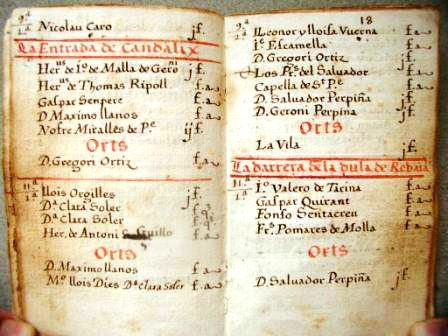 9.ª
1.ª Nicolau Caro jf.
La Entrada de Candalix
Her.us de J.o de Malla de Geroni jf.
Her.us de Thomas Ripoll f.a
Gaspar Senpere f.a
D. Maximo llanos f.a
Nofre Miralles de P.e ijf.
Orts
D. Gregori Ortiz f.a
11.ª
1.ª llois Orgilles jf.
D.ª Clara Soler f.
D.ª Clara Soler f.
Her. de Antoni f.a
Orts
D. Maximo llanos f.a
M.o llois Dies D.ª Clara Soler f.a
18
9.ª
2.ª lleonor y lloisa Vuerna f.a
J.o Escamella f.a
D. Gregori Ortiz jf.
Los P.rs del Salvador f.a
Capella de S.t P.e f.a
D. Salvador Perpiña jf.
D. Geroni Perpiña f.a
Orts
La Vila jf.
La darrera de la dula de
11.ª
1.ª J.o Valero de Tarina f.a
Gaspar Quirant f.a
Fonso Sentacreu f.a
Fr.o Pomares de Molla f.a
Orts
D. Salvador Perpiña jf.